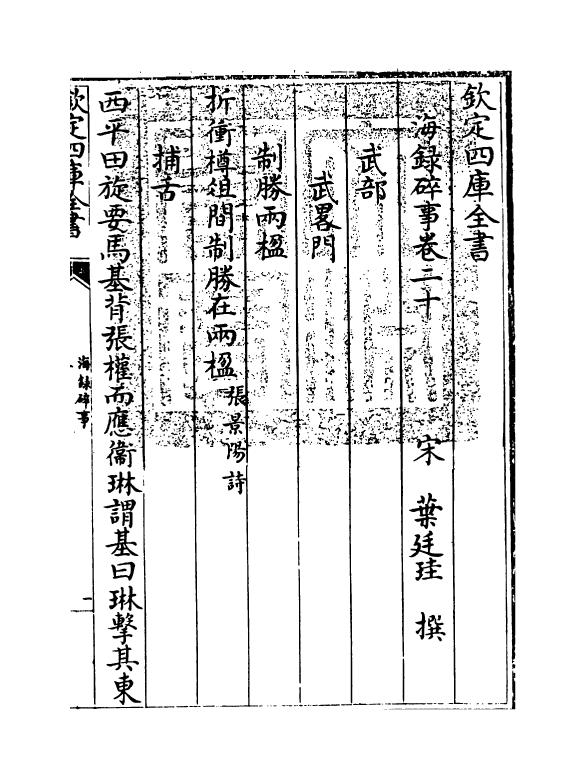 欽定四庫全書
海録碎事卷二十　宋　葉廷珪　撰
武部
武畧門
制勝兩楹
折衝樽俎間制勝在兩楹張景陽詩
捕舌
西平田旋要馬基背張權而應衞琳謂基曰琳擊其東
欽定四庫全書
海錄碎事
一